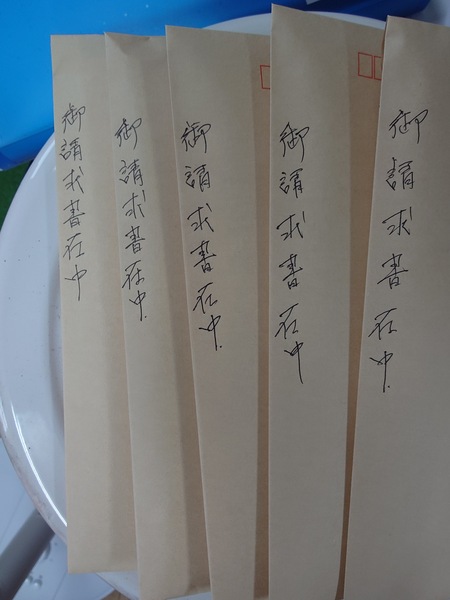 御請求書在中
御請求書在中.
御請求書在中.
御請求書在中
御請求書在中.